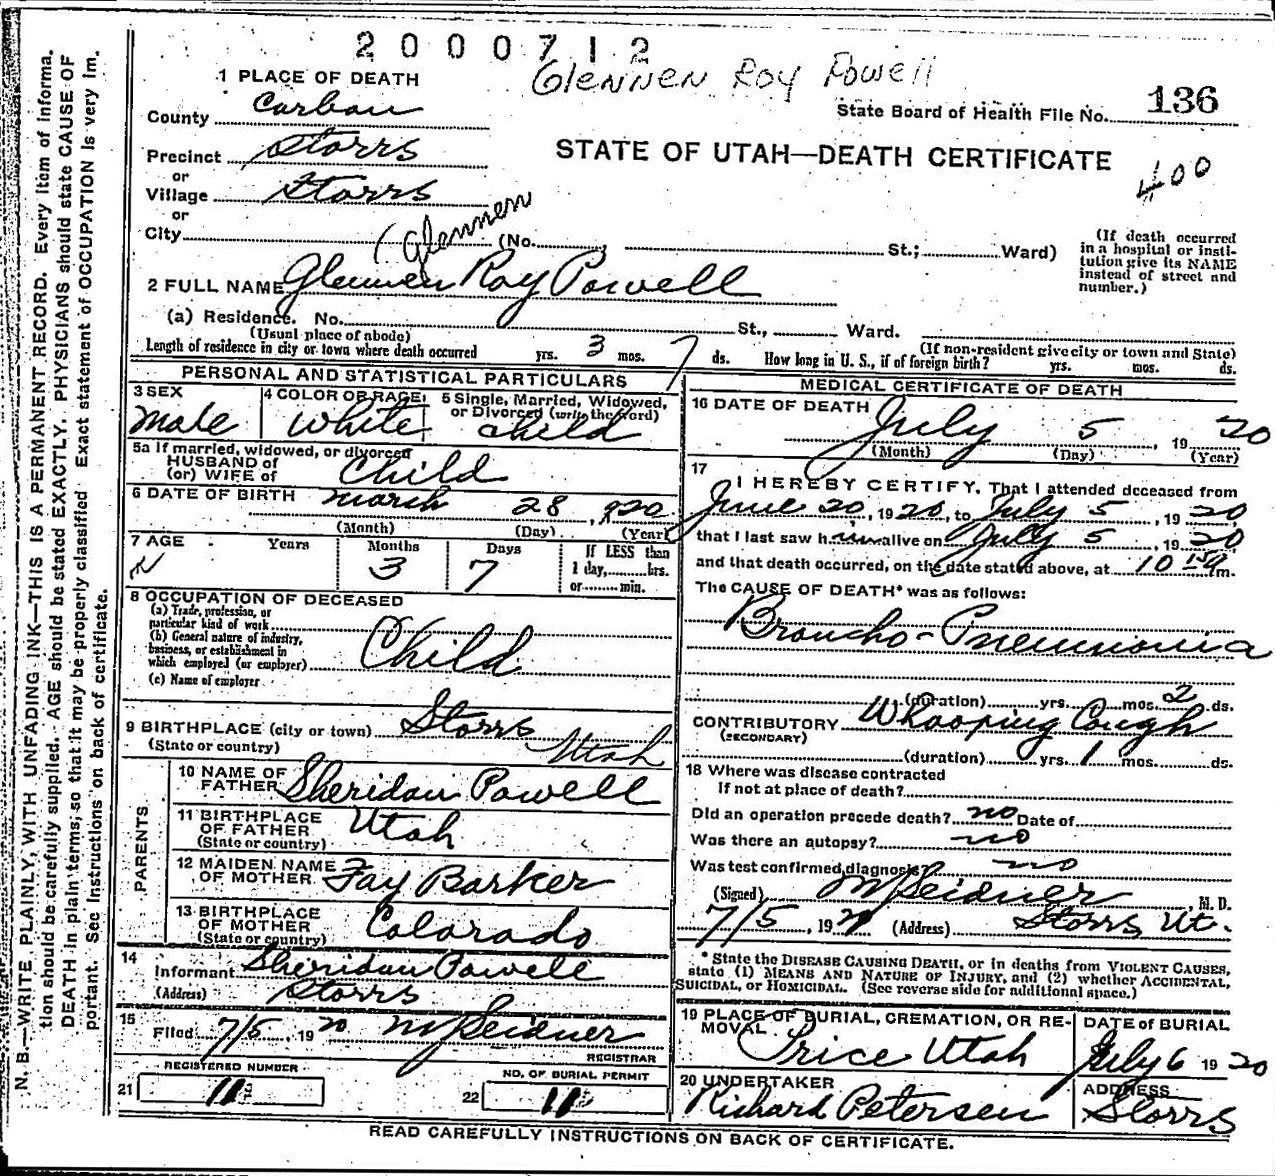 2000712
Glennen Roy Powell
1 PLACE OF DEATH
State Board of Health File No. 136
County Carbon
Precinct Storrs
STATE OF UTAH—DEATH CERTIFICATE
400
or
Village Storrs
or
City (No. St.; Ward)
(Glennen
(If death occurred in a hospital or insti-
tution give its NAME
instead of street and
number.)
2 FULL NAME Glennen Roy Powell
(a) Residence. No. St., Ward.
(Usual place of abode) (If non-resident give city or town and State)
Length of residence in city or town where death occurred yrs. 3 mos. 7 ds. How long in U. S., if of foreign birth? yrs. mos. ds.
PERSONAL AND STATISTICAL PARTICULARS
3 SEX male
4 COLOR OR RACE white
5 Single, Married, Widowed,
or Divorced (write the word)
child
5a If married, widowed, or divorced
HUSBAND of
(or) WIFE of Child
6 DATE OF BIRTH march 28, 1920
(Month) (Day) (Year)
7 AGE Years Months Days If LESS than
3 7 1 day, hrs.
or min.
8 OCCUPATION OF DECEASED
(a) Trade, profession, or
particular kind of work
(b) General nature of industry,
business, or establishment in
which employed (or employer) Child
(c) Name of employer
9 BIRTHPLACE (city or town) Storrs
(State or country) Utah
PARENTS
10 NAME OF
FATHER Sheridan Powell
11 BIRTHPLACE
OF FATHER Utah
(State or country)
12 MAIDEN NAME
OF MOTHER Fay Barker
13 BIRTHPLACE
OF MOTHER Colorado
(State or country)
14
Informant Sheridan Powell
(Address) Storrs
15
Filed 7/5, 1920 M Seidner
REGISTRAR
REGISTERED NUMBER
21 11
NO. OF BURIAL PERMIT
22 11
MEDICAL CERTIFICATE OF DEATH
16 DATE OF DEATH July 5, 1920
(Month) (Day) (Year)
17
I HEREBY CERTIFY, That I attended deceased from
June 20, 1920, to July 5, 1920
that I last saw him alive on July 5, 1920
and that death occurred, on the date stated above, at 10 m.
The CAUSE OF DEATH* was as follows:
Broncho-Pneumonia
(duration) yrs. mos. 2 ds.
CONTRIBUTORY Whooping Cough
(SECONDARY)
(duration) yrs. 1 mos. ds.
18 Where was disease contracted
If not at place of death?
Did an operation precede death? no Date of
Was there an autopsy? no
Was test confirmed diagnosis? no
(Signed) M Seidner, M. D.
7/5, 1920 (Address) Storrs Ut.
* State the DISEASE CAUSING DEATH, or in deaths from VIOLENT CAUSES,
state (1) MEANS AND NATURE OF INJURY, and (2) whether ACCIDENTAL,
SUICIDAL, or HOMICIDAL. (See reverse side for additional space.)
19 PLACE OF BURIAL, CREMATION, OR RE-
MOVAL Price Utah
DATE of BURIAL
July 6 1920
20 UNDERTAKER
Richard Petersen
ADDRESS
Storrs
READ CAREFULLY INSTRUCTIONS ON BACK OF CERTIFICATE.
N. B.—WRITE PLAINLY, WITH UNFADING INK—THIS IS A PERMANENT RECORD. Every item of informa-
tion should be carefully supplied. AGE should be stated EXACTLY. PHYSICIANS should state CAUSE OF
DEATH in plain terms, so that it may be properly classified. Exact statement of OCCUPATION is very im-
portant. See instructions on back of certificate.